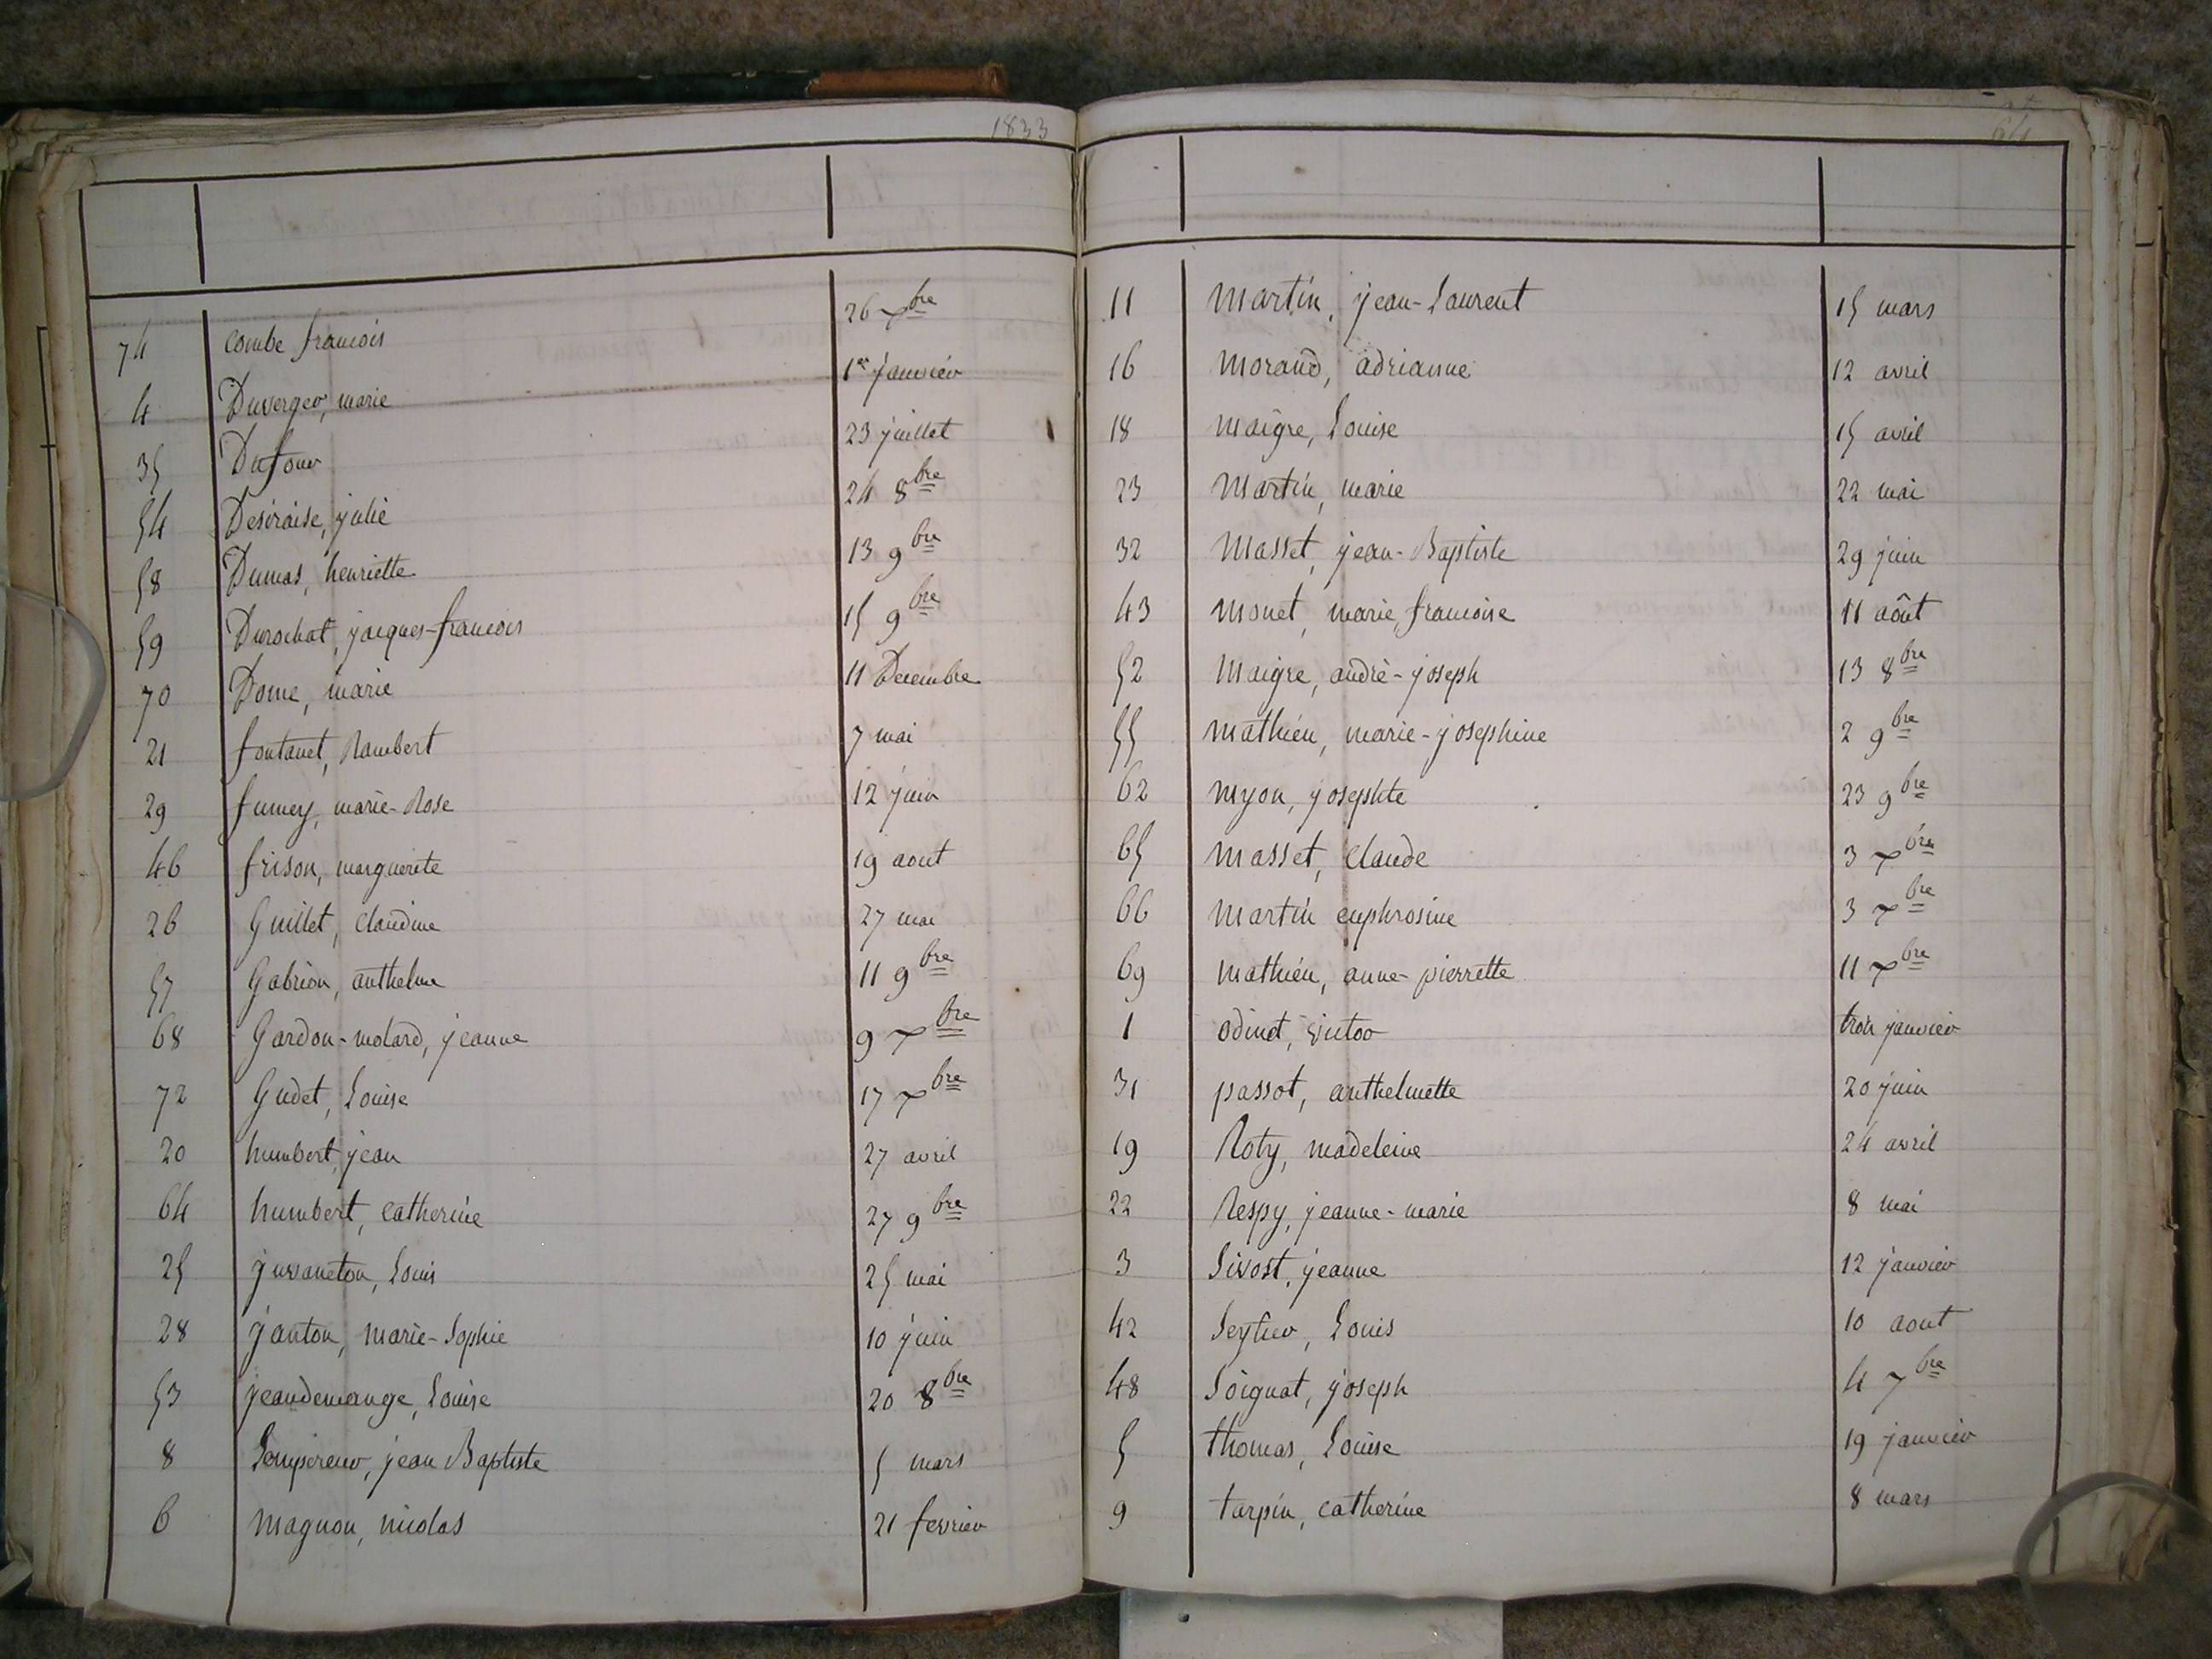 1833
74 Combe francois 26 Xbre
4 Duverger, marie 1er janvier
35 Dufour 23 juillet
54 Désiraise, julie 24 8bre
58 Dumas, henriette 13 9bre
59 Durochat, jacques-francois 15 9bre
70 Dome, marie 11 Decembre
21 fontanet, Rambert 7 mai
29 fumey, marie-Rose 12 juin
46 frison, marguerite 19 aout
26 Guillet, Claudine 27 mai
57 Gabrion, anthelme 11 9bre
68 Gardon-molard, jeanne 9 Xbre
72 Gudet, Louise 17 Xbre
20 humbert, jean 27 avril
64 humbert, catherine 27 9bre
25 juvaneton, Louis 25 mai
28 janton, marie-Sophie 10 juin
53 jeandemange, Louise 20 8bre
8 jean Baptiste 5 mars
6 magnon, nicolas 21 fevrier
64
11 Martin, jean-Laurent 15 mars
16 Morand, adrianne 12 avril
18 Maigre, Louise 15 avril
23 Martin, marie 22 mai
32 Masset, jean-Baptiste 29 juin
43 Monet, marie, francoise 11 août
52 Maigre, andré-joseph 13 8bre
55 Mathieu, marie-josephine 2 9bre
62 Myon, josephte 23 9bre
65 Masset, Claude 3 Xbre
66 Martin euphrosine 3 Xbre
69 Mathieu, anne-pierrette 11 Xbre
1 odinet, victor trois janvier
31 passot, anthelmette 20 juin
19 Roty, madeleine 24 avril
22 Respy, jeanne-marie 8 mai
3 Sivost, jeanne 12 janvier
42 Louis 10 aout
48 Soignat, joseph 4 7bre
5 thomas, Louise 19 janvier
9 tarpin, catherine 8 mars